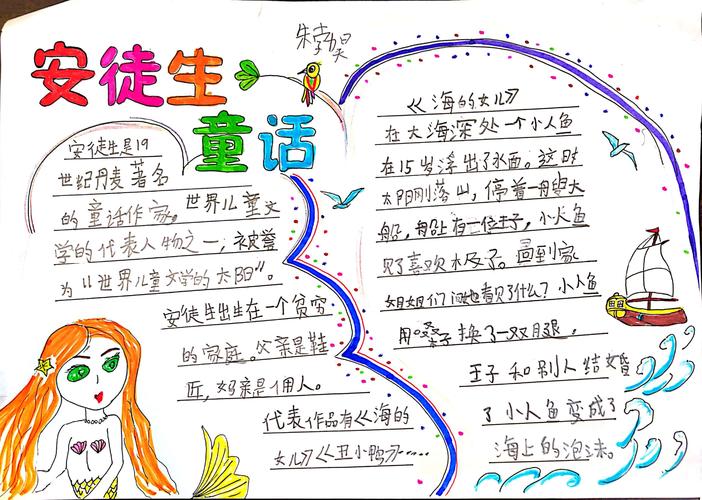 安徒生
童话
安徒生是19
世纪丹麦著名
的童话作家。世界儿童文
学的代表人物之一，被誉
为“世界儿童文学的太阳”。
安徒生出生在一个贫穷
的家庭。父亲是鞋
匠，妈亲是佣人。
代表作品有《海的
女儿》《丑小鸭》……
《海的女儿》
在大海深处一个小人鱼
在15岁浮出了水面。这时
太阳刚落山，停着一艘大
船，船上有一位王子，小人鱼
见了喜欢极了。回到家
姐姐们问她看见了什么？小人鱼
用嗓子换了一双月腿。
王子和别人结婚
了小人鱼变成了
海上的泡沫。